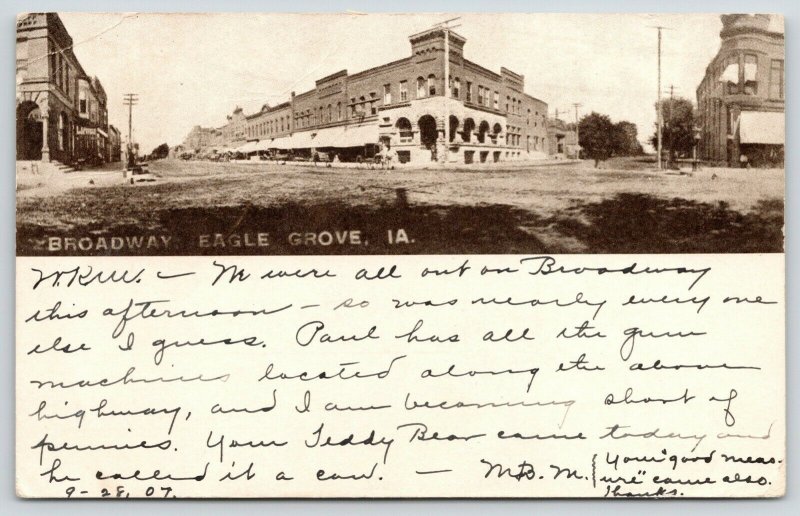 BROADWAY, EAGLE GROVE, IA.
W.K.W. — We were all out on Broadway
this afternoon — so was nearly every one
else I guess. Paul has all the gum
machines located along the above
highway, and I am becoming short of
pennies. Your Teddy Bear came today and
he called it a cow. — M.B.M.
9-28, 07.
Your "good meas-
ure" came also.
Thanks.